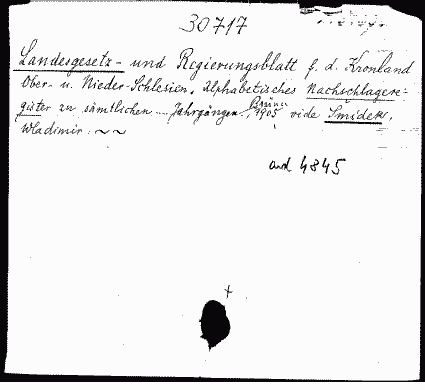 30717
Landesgesetz- und Regierungsblatt f. d. Kronland
Ober- u. Nieder-Schlesien. Alphabetisches Nachschlagere-
gister zu sämtlichen Jahrgängen. Brünn
1905 vide Smídek,
Wladimir. ~~
and 4845